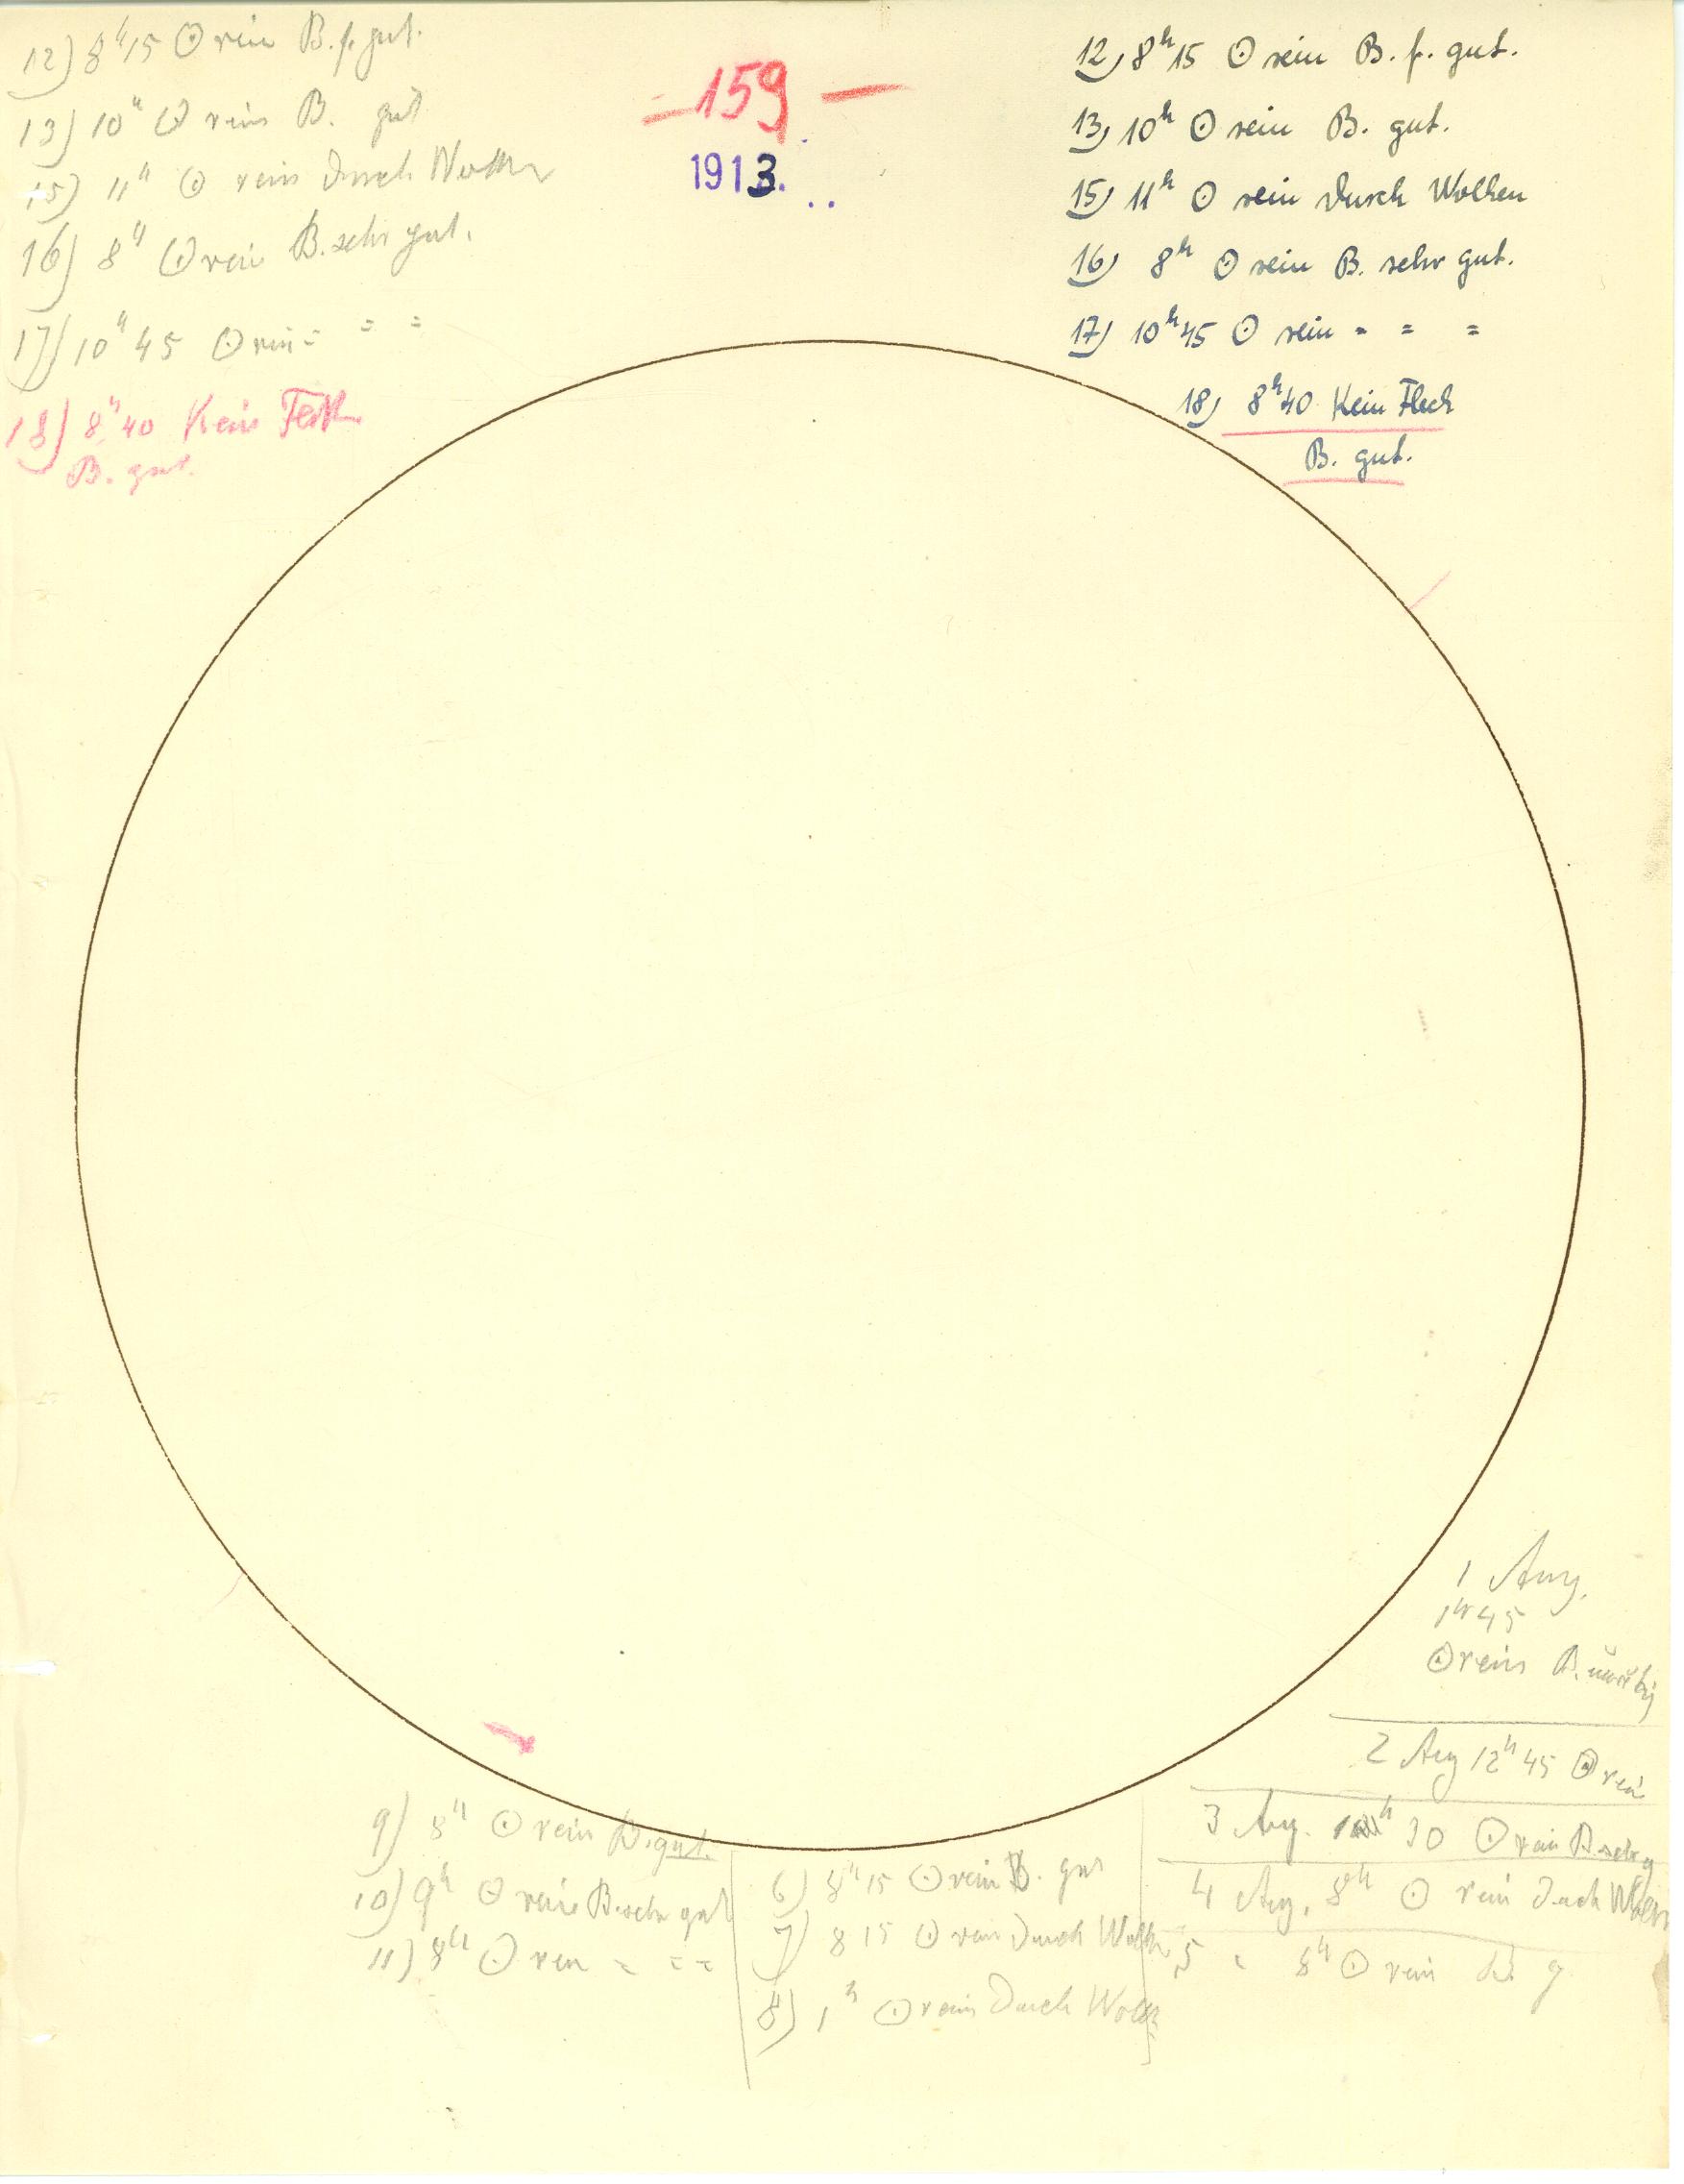 12) 8h15 ⊙ rein B. s. gut.
13) 10h ⊙ rein B. gut
15) 11h ⊙ rein durch Wolken
16) 8h ⊙ rein B. sehr gut.
17) 10h 45 ⊙ rein = = =
18) 8h 40 Kein Fleck
B. gut.
159
1913.
12) 8h15 ⊙ rein B. s. gut.
13) 10h ⊙ rein B. gut.
15) 11h ⊙ rein durch Wolken
16) 8h ⊙ rein B. sehr gut.
17) 10h45 ⊙ rein = = =
18) 8h40 Kein Fleck
B. gut.
1 Aug.
1h45
⊙ rein B.
2 Aug 12h45 ⊙ rein
3 Aug. 30 ⊙ rein B sehr g
4 Aug. 8h ⊙ rein durch Wolken
5 " 8h ⊙ rein B. g
6) 8h15 ⊙ rein B. gut
7) 8 15 ⊙ rein durch Wolken
8) 1h ⊙ rein durch Wolk
9) 8h ⊙ rein B. gut.
10) 9h ⊙ rein B. sehr gut
11) 8h ⊙ rein = = =